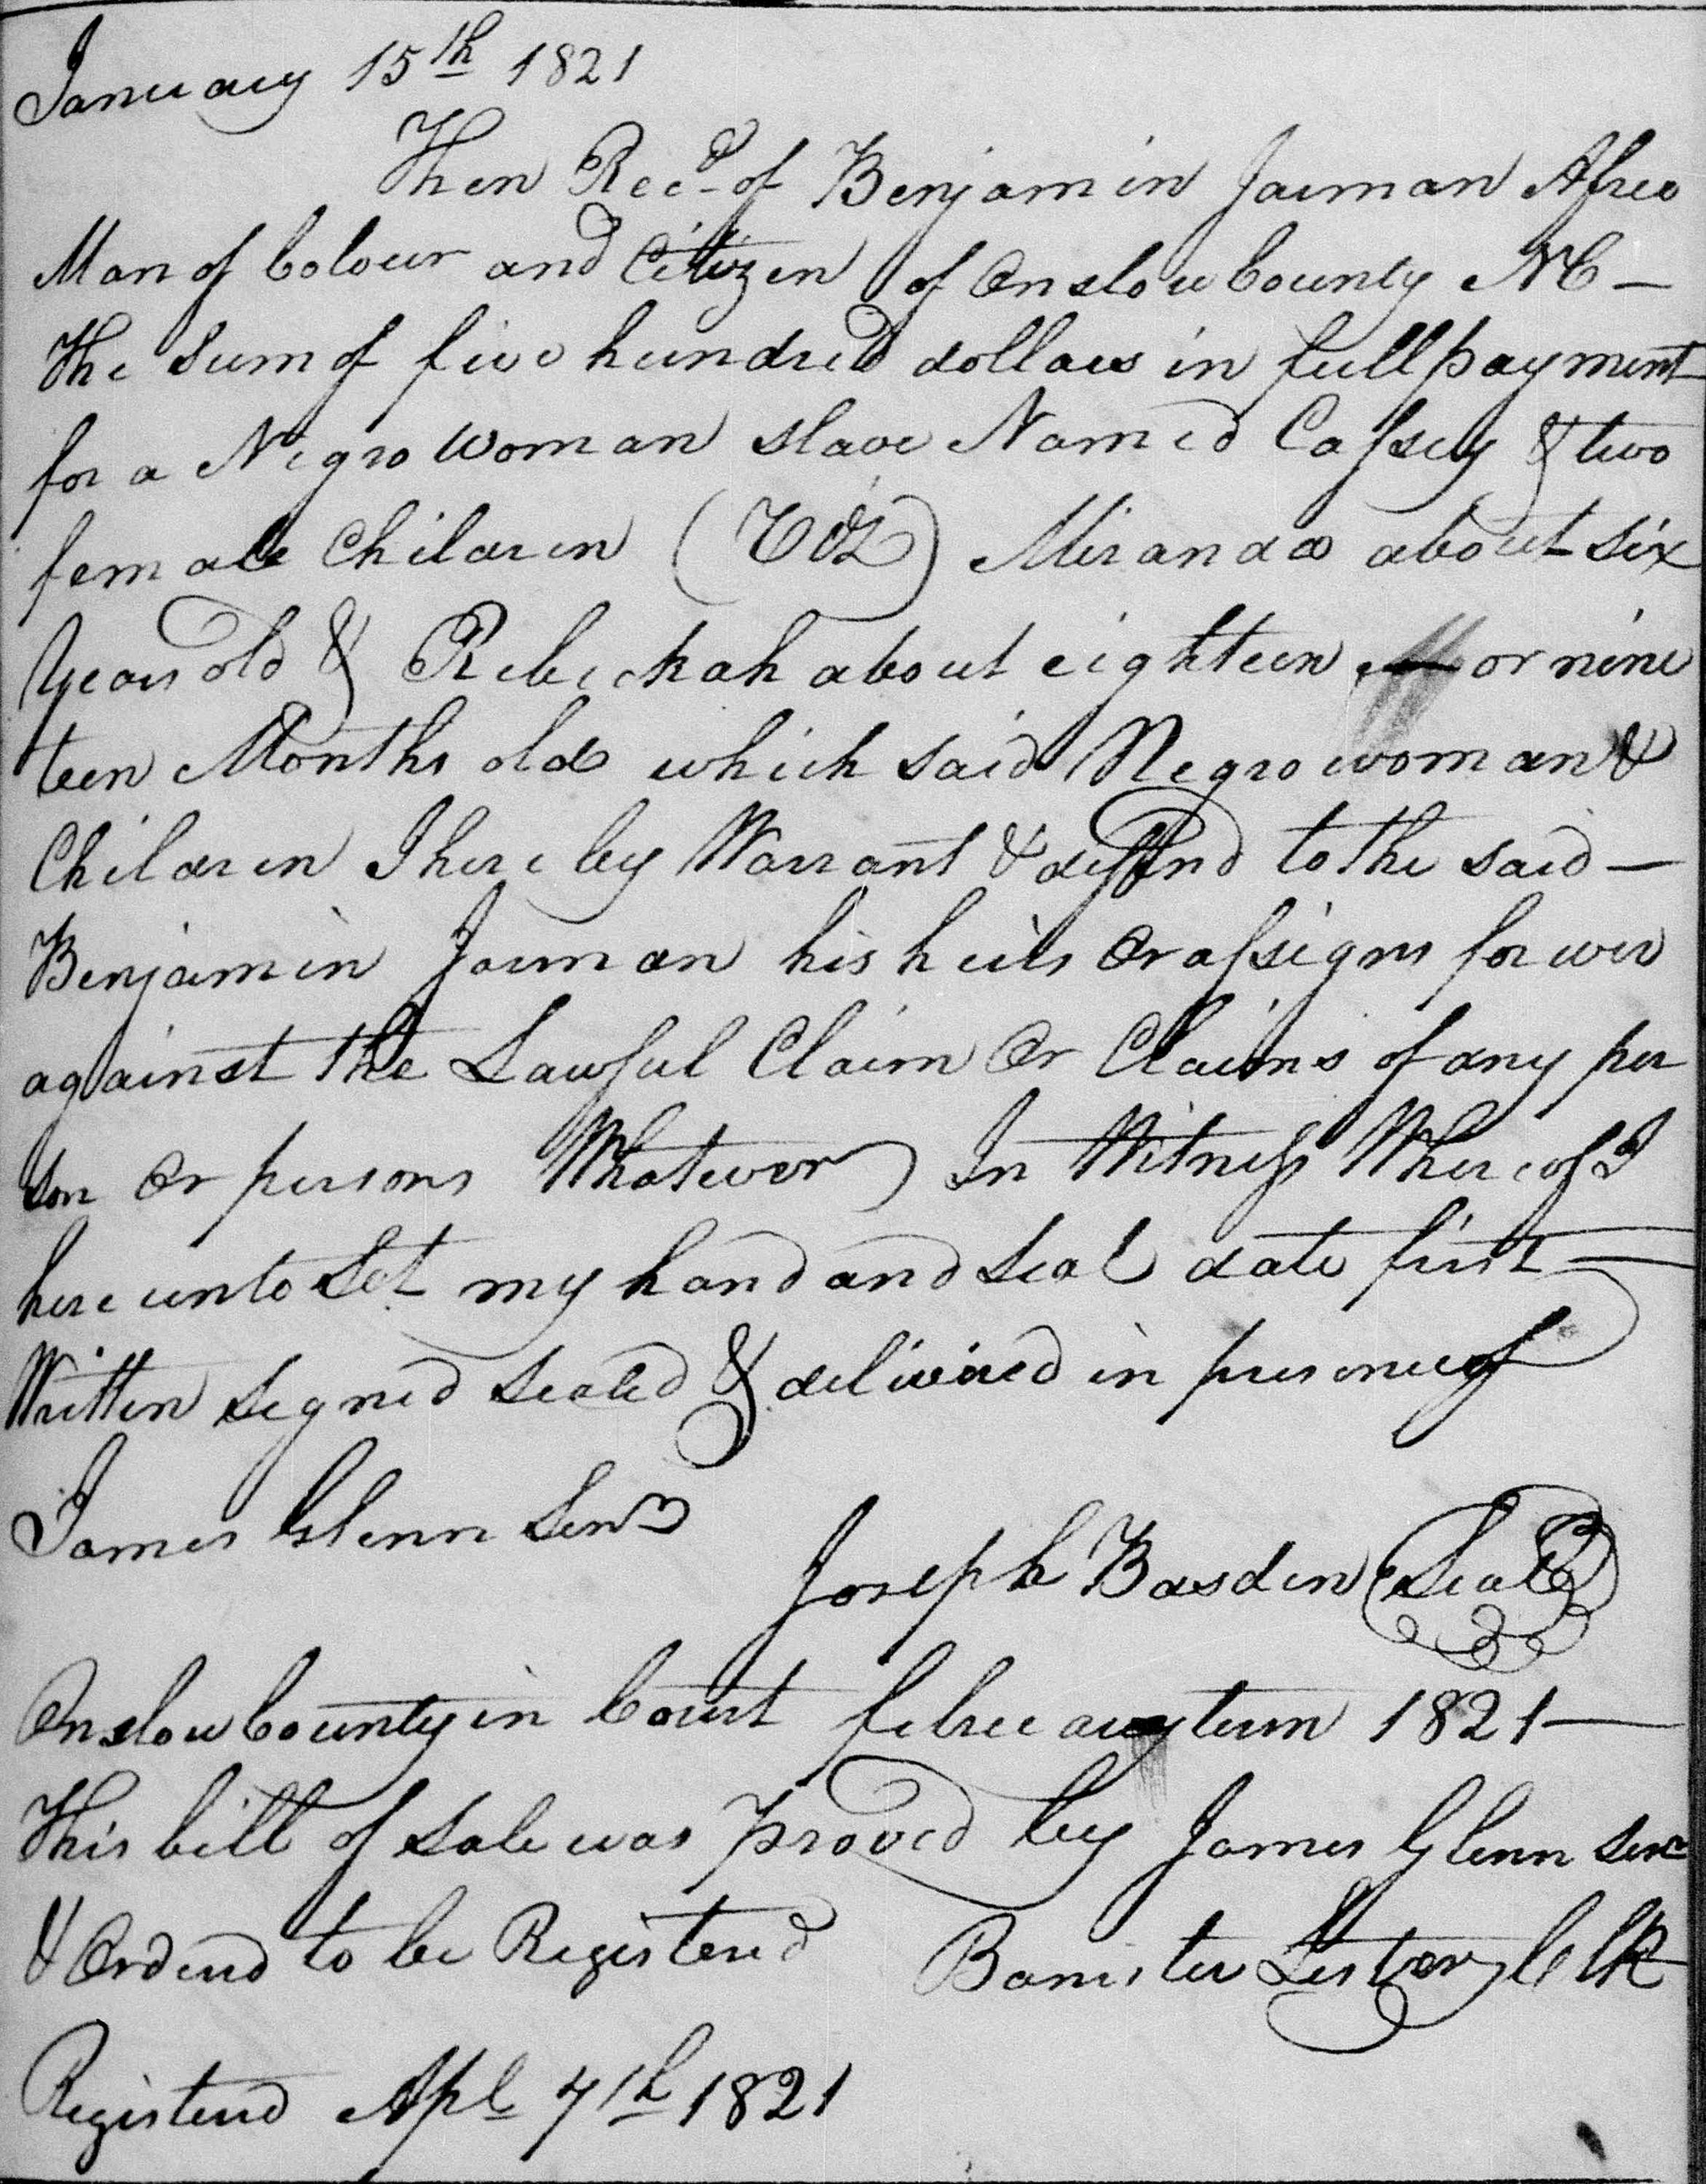 January 15th 1821
Then Recd of Benjamin Jarman A free
Man of Colour and Citizen of Onslow County NC —
The Sum of five hundred dollars in full payment
for a Negro woman slave Named Cassey & two
female Children (Viz) Miranda about six
Years old & Rebeckah about eighteen or nine
teen Months old which said Negro woman &
Children I hereby Warrant & deffend to the said —
Benjamin Jarman his heirs Or assigns forever
against the Lawful Claim Or Claims of any per
son Or persons Whatever In Witness Whereof I
here unto Set my hand and Seal date first
Written Signed Sealed & delivered in presence of
James Glenn Senr
Joseph Basden (Seal)
Onslow County in Court february term 1821 —
This bill of Sale was Proved by James Glenn Senr
& Ordered to be Registered Banister Lester Clk
Registered Apl 7th 1821